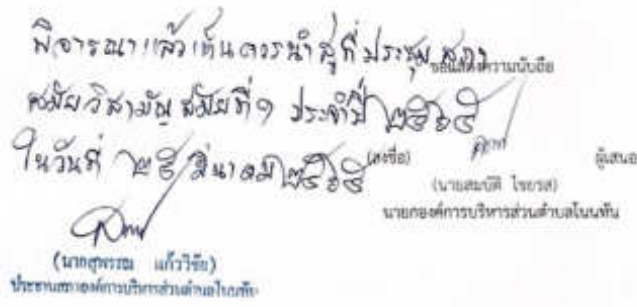 พิจารณาแล้วเห็นควรนำสู่ที่ประชุมสภา
ขอแสดงความนับถือ
สมัยวิสามัญ สมัยที่ ๑ ประจำปี ๒๕๖๕
ในวันที่ ๒๕ มีนาคม ๒๕๖๕
(ลงชื่อ) ผู้เสนอ
(นายสมบัติ ไชยรส)
นายกองค์การบริหารส่วนตำบลโนนทัน
(นายสุพรรณ แก้ววิชัย)
ประธานสภาองค์การบริหารส่วนตำบลโนนทัน